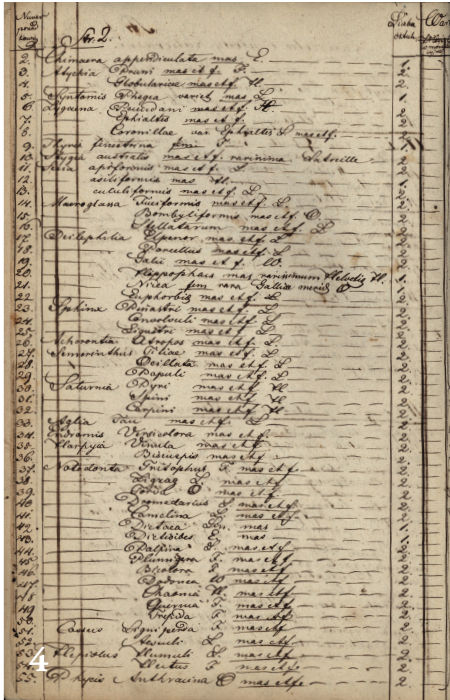 Nr. 2.
2. Chimaera appendiculata mas E. 1.
3. Atychia Pruni mas et f. F. 2.
4. Globulariae mas et f. H. 2.
5. Syntomis Phegea variet. mas L. 1.
6. Zygaena Peucedani mas et f. H. 2.
7. Ephialtes mas et f. 2.
8. Coronillae var. Ephialtes mas et f. 2.
9. Thyris fenestrina F.
10. Stygia australis mas et f. rarissima Latreille 2.
11. Sesia apiformis mas et f. L. 2.
12. asiliformis mas 1.
13. culiciformis mas et f. L. 2.
14. Macroglossa Fuciformis mas et f. L. 2.
15. Bombyliformis mas et f. O. 2.
16. Stellatarum mas et f. L. 2.
17. Deilephila Elpenor mas et f. L. 2.
18. Porcellus mas et f. L. 2.
19. Galii mas et f. W. 2.
20. Hippophaes mas rarissimum H. 1.
21. Nicea fem rara Gallia merid. 1.
22. Euphorbiae mas et f. L. 2.
23. Sphinx Pinastri mas et f. L. 2.
24. Convolvuli mas et f. L. 2.
25. Ligustri mas et f. L. 2.
26. Acherontia Atropos mas et f. L. 2.
27. Smerinthus Tiliae mas et f. L. 2.
28. Ocellata mas et f. L. 2.
29. Populi mas et f. L. 2.
30. Saturnia Pyri mas et f. H. 2.
31. Spini mas et f. H. 2.
32. Carpini mas et f. H. 2.
33. Aglia Tau mas et f. L. 2.
34. Endromis Versicolora mas et f. 2.
35. Harpyia Vinula mas et f. 2.
36. Bicuspis mas et f. 2.
37. Notodonta Tritophus F. mas et f. 2.
38. Ziczag L. mas et f. 2.
39. Torva O. mas et f. 2.
40. Dromedarius L. mas et f. 2.
41. Camelina L. mas et f. 2.
42. Dictaea Lin. mas 1.
43. Dictaeoides E. mas 1.
44. Palpina L. mas et f. 2.
45. Plumigera F. mas et f. 2.
46. Bicolora F. mas et f. 2.
47. Dodonea W. mas et f. 2.
48. Chaonia H. mas et f. 2.
49. Quercna F. mas et f. 2.
50. Trepida F. mas et f. 2.
51. Cossus Ligniperda F. mas et f. 2.
52. Aesculi L. mas et f. 2.
53. Hepiolus Humuli L. mas et f. 2.
54. Hectus F. mas et f. 2.
55. Psyche Anthracina O. mas et f. 2.
4